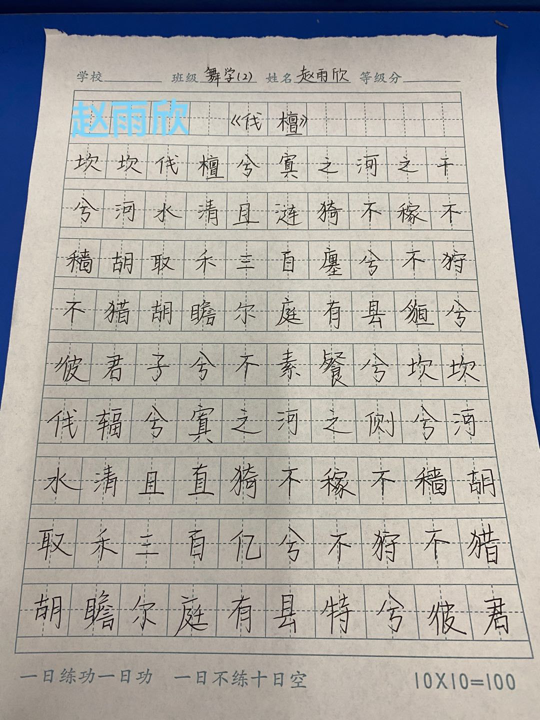 学校 班级 舞学(2) 姓名 赵雨欣 等级分
赵雨欣 《伐檀》
坎坎伐檀兮寘之河之干
兮河水清且涟猗不稼不
穑胡取禾三百廛兮不狩
不猎胡瞻尔庭有县貆兮
彼君子兮不素餐兮坎坎
伐辐兮寘之河之侧兮河
水清且直猗不稼不穑胡
取禾三百亿兮不狩不猎
胡瞻尔庭有县特兮彼君
一日练功一日功 一日不练十日空 10X10=100